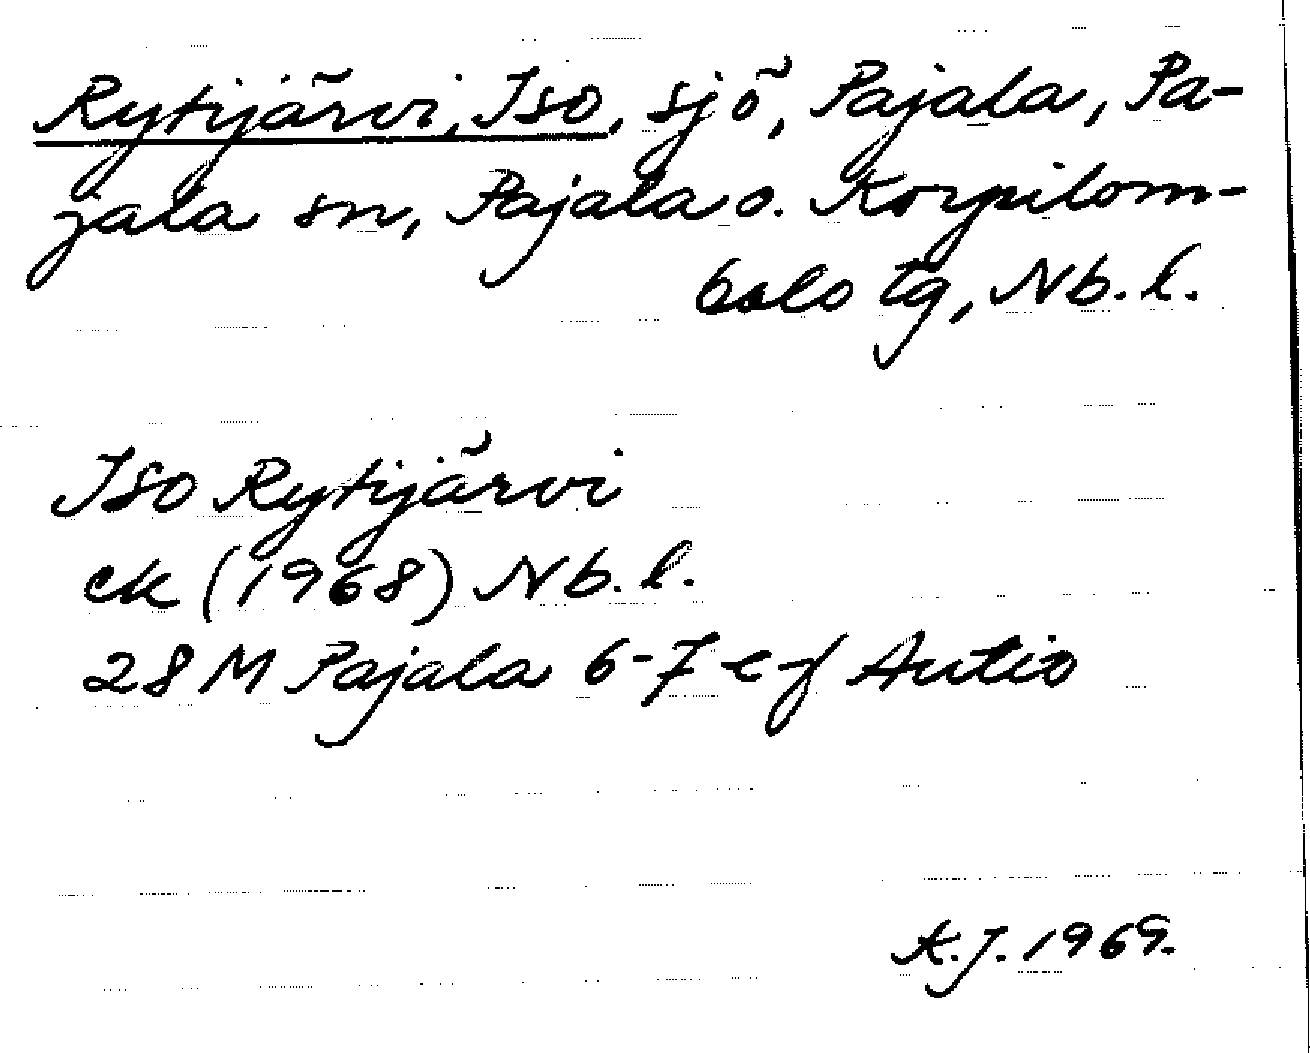 Rytijärvi, Iso, sjö, Pajala, Pa-
jala sn, Pajala o. Korpilom-
bolo tg, Nb. l.
Iso Rytijärvi
ek (1968) Nb. l.
28 M Pajala 6-7 e-f Autio
A.J. 1969.